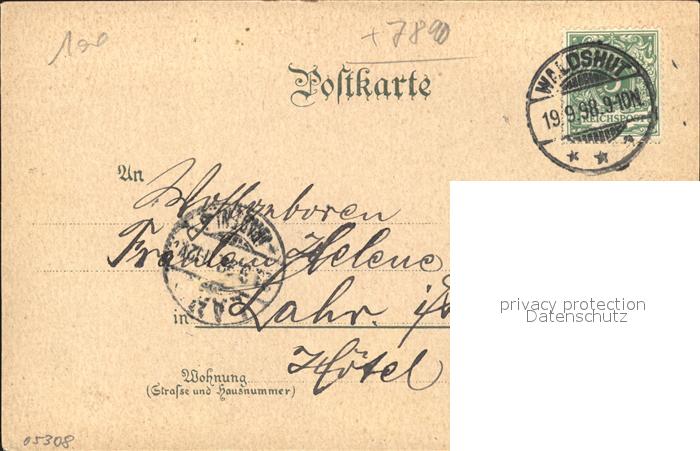 100
+7890
Postkarte
5
REICHSPOST
WALDSHUT
19.9.98.9-10N.
An
Wohlgeboren
Fräulein Helene
in Lahr. i/
Hôtel
Wohnung
(Strasse und Hausnummer)
privacy protection
Datenschutz
05308